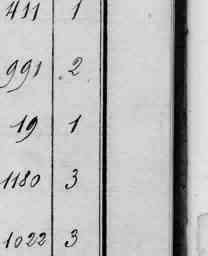 411 1
991 2
19 1
1180 3
1022 3